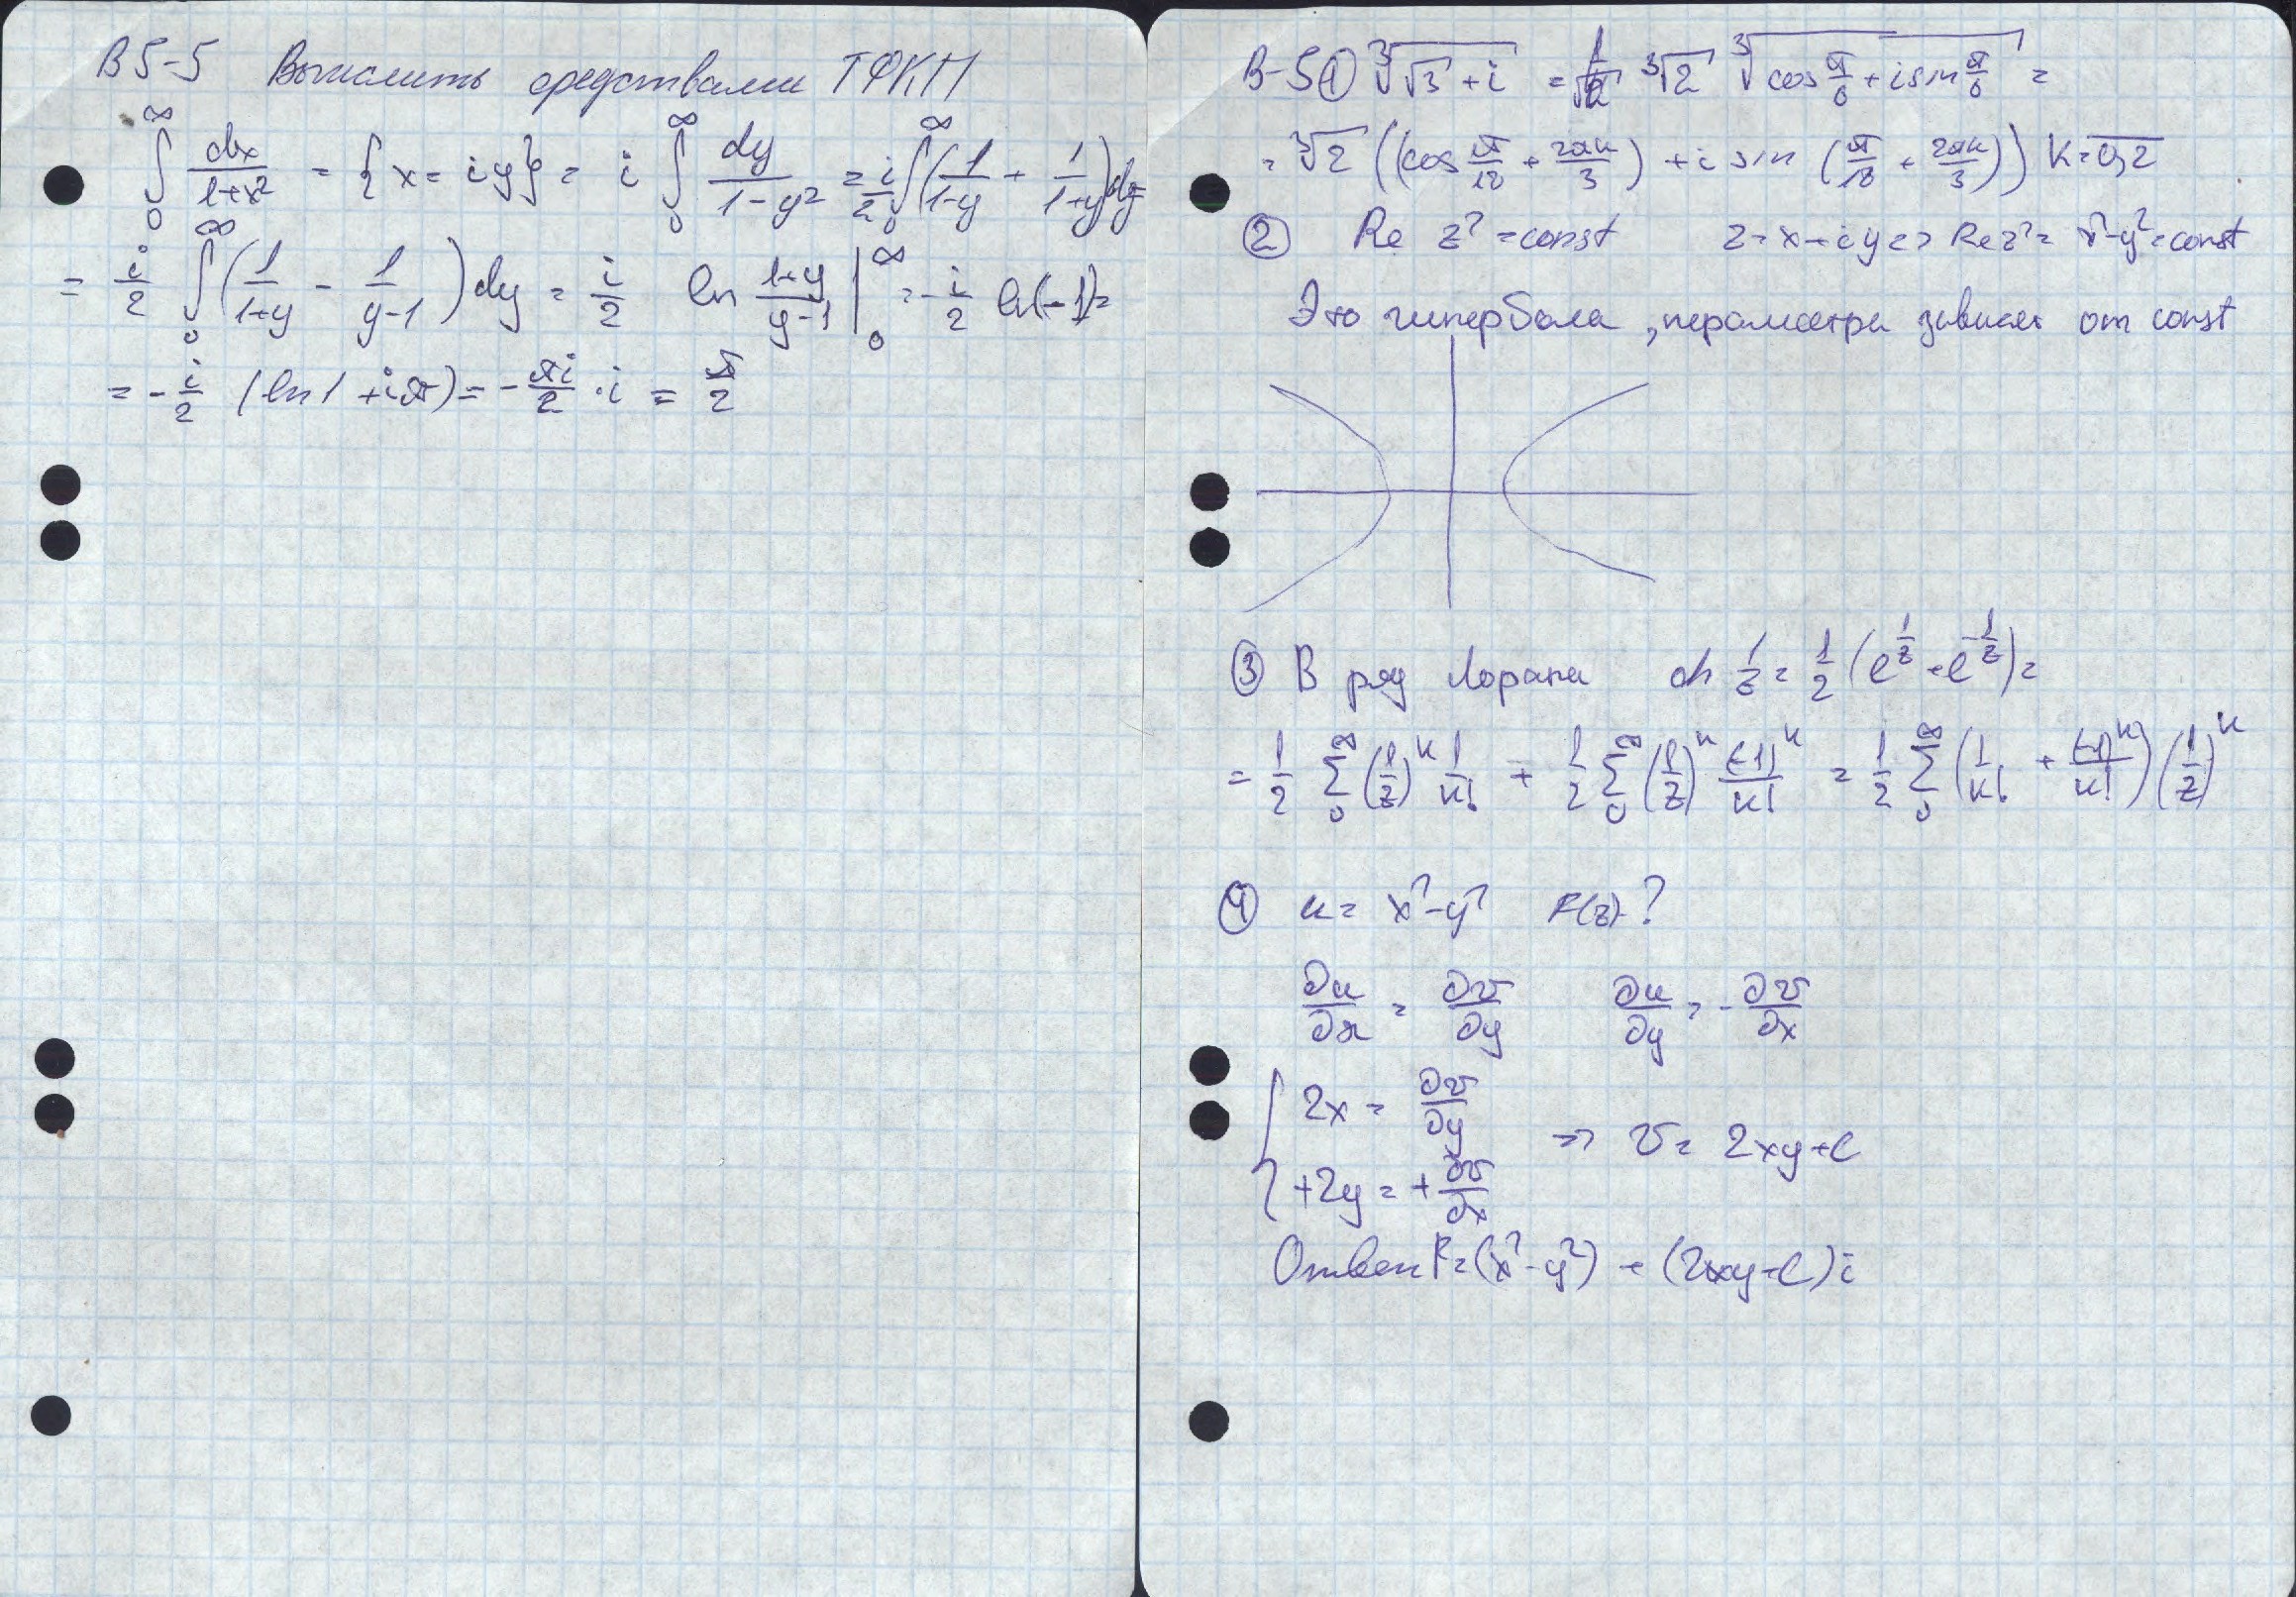 В 5-5 Вычислить средствами ТФКП
∫₀^∞ dx/(1+x²) = {x = iy} = i ∫₀^∞ dy/(1-y²) = i/2 ∫₀^∞ (1/(1-y) + 1/(1+y)) dy =
= i/2 ∫₀^∞ (1/(1+y) - 1/(y-1)) dy = i/2 ln (1+y)/(y-1) |₀^∞ = -i/2 ln(-1) =
= -i/2 (ln 1 + iπ) = -πi/2 · i = π/2
В-5 ① ∛(√3 + i) = ∛2 ∛(cos π/6 + i sin π/6) =
= ∛2 ((cos π/18 + 2πk/3) + i sin (π/18 + 2πk/3)) k = 0,2
② Re z² = const z = x + iy => Re z² = x² - y² = const
Это гипербола, параметри зависят от const
③ В ряд Лорана ch 1/z = 1/2 (e^(1/z) + e^(-1/z)) =
= 1/2 ∑₀^∞ (1/z)^k 1/k! + 1/2 ∑₀^∞ (1/z)^k (-1)^k/k! = 1/2 ∑₀^∞ (1/k! + (-1)^k/k!) (1/z)^k
④ u = x² - y² F(z) - ?
∂u/∂x = ∂v/∂y ∂u/∂y = -∂v/∂x
{ 2x = ∂v/∂y
+2y = +∂v/∂x => v = 2xy + c
Ответ F = (x² - y²) + (2xy + c) i